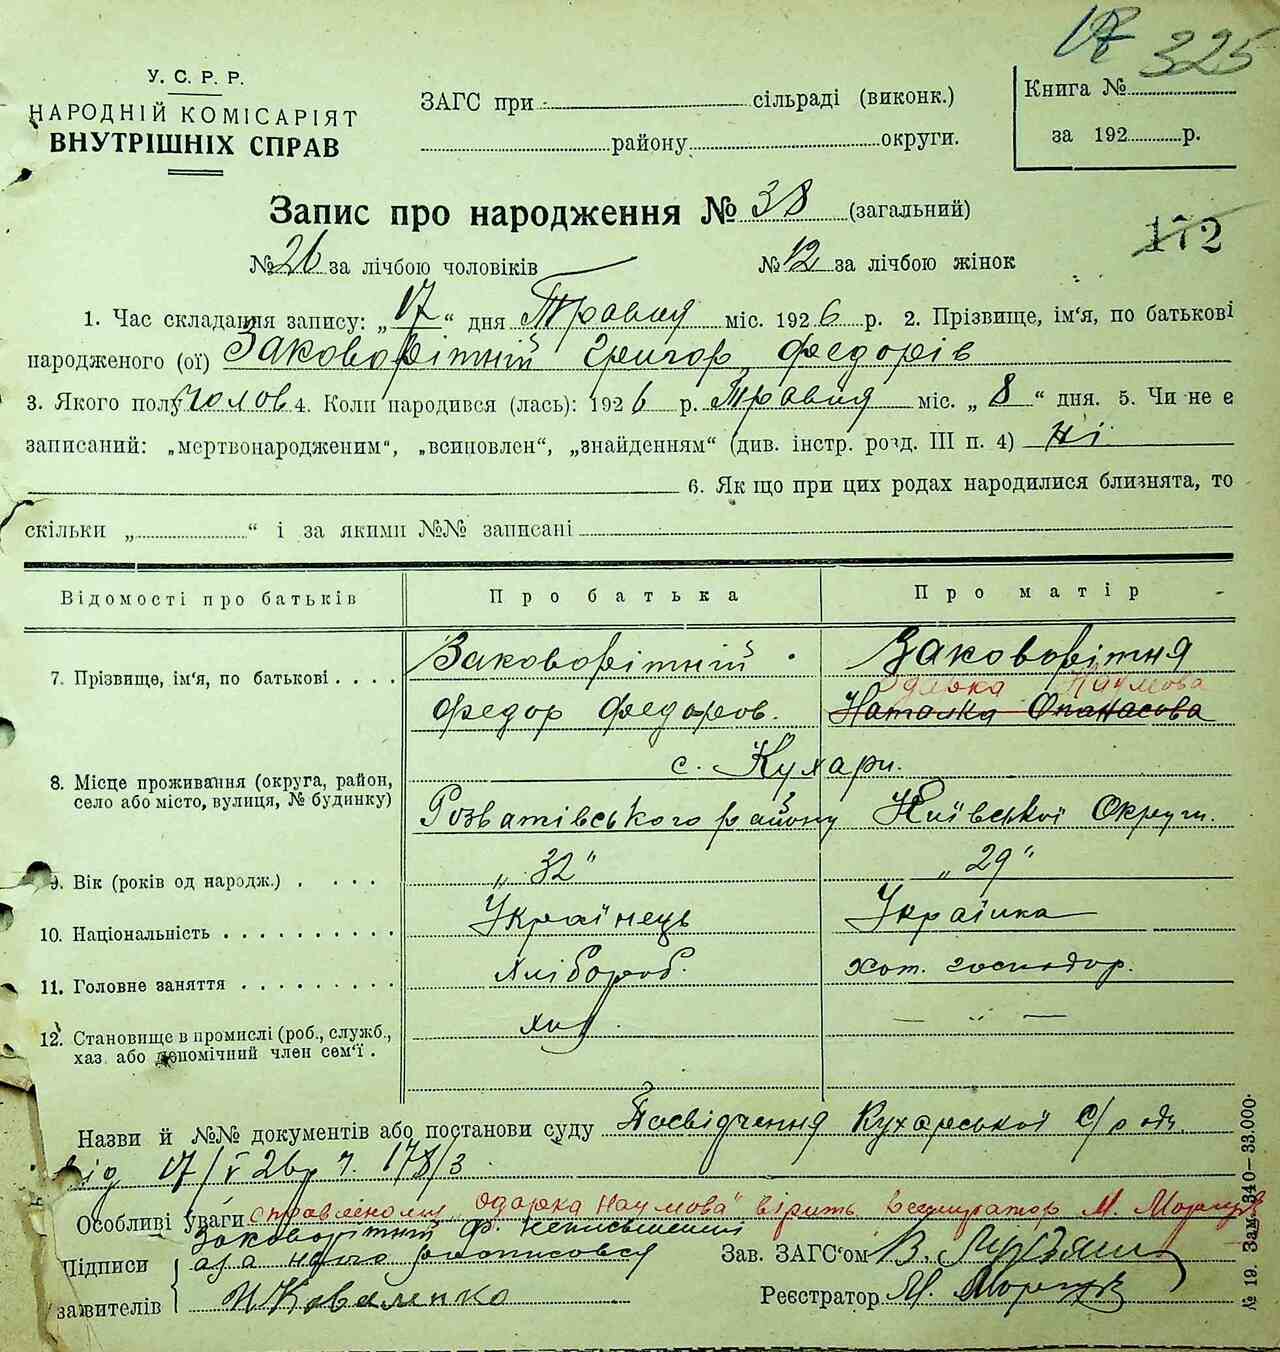 325
У. С. Р. Р.
НАРОДНІЙ КОМІСАРІЯТ
ВНУТРІШНІХ СПРАВ
ЗАГС при сільраді (виконк.)
району округи.
Книга №
за 192 р.
Запис про народження № 38 (загальний)
172
№ 26 за лічбою чоловіків № 12 за лічбою жінок
1. Час складання запису: „17“ дня Травня міс. 1926 р. 2. Прізвище, ім'я, по батькові
народженого (ої) Заковоротній Григор Федорів
3. Якого полу чолов 4. Коли народився (лась): 1926 р. Травня міс. „8“ дня. 5. Чи не є
записаний: „мертвонародженим“, „всиновлен“, „знайденням“ (див. інстр. розд. III п. 4) ні
6. Як що при цих родах народилися близнята, то
скільки „ “ і за якими №№ записані
Відомості про батьків Про батька Про матір
7. Прізвище, ім'я, по батькові . . . . Заковорітний Заковорітня
Одарка Наумова
Федор Федоров. Наталка Опанасова
8. Місце проживання (округа, район, село або місто, вулиця, № будинку) с. Кухари.
Розватівського району Київської Округи.
9. Вік (років од народж.) . . . . „32“ „29“
10. Національність . . . . . . . . . . Українець Українка
11. Головне заняття . . . . . . . . . Хлібороб. хат. господар.
12. Становище в промислі (роб., служб.,
хаз. або допомічний член сем'ї . — „ —
Назви й №№ документів або постанови суду Посвідчення Кухарської С/ради
від 17/V 26р ч. 178/3
Особливі уваги справленому „Одарка Наумова“ вірить реєстратор М.
Заковорітній Ф. неписьменний
Підписи а за нього росписовся Зав. ЗАГС'ом В.
заявителів И Коваленко Реєстратор М.
№ 19. Зам. 340—33.000.